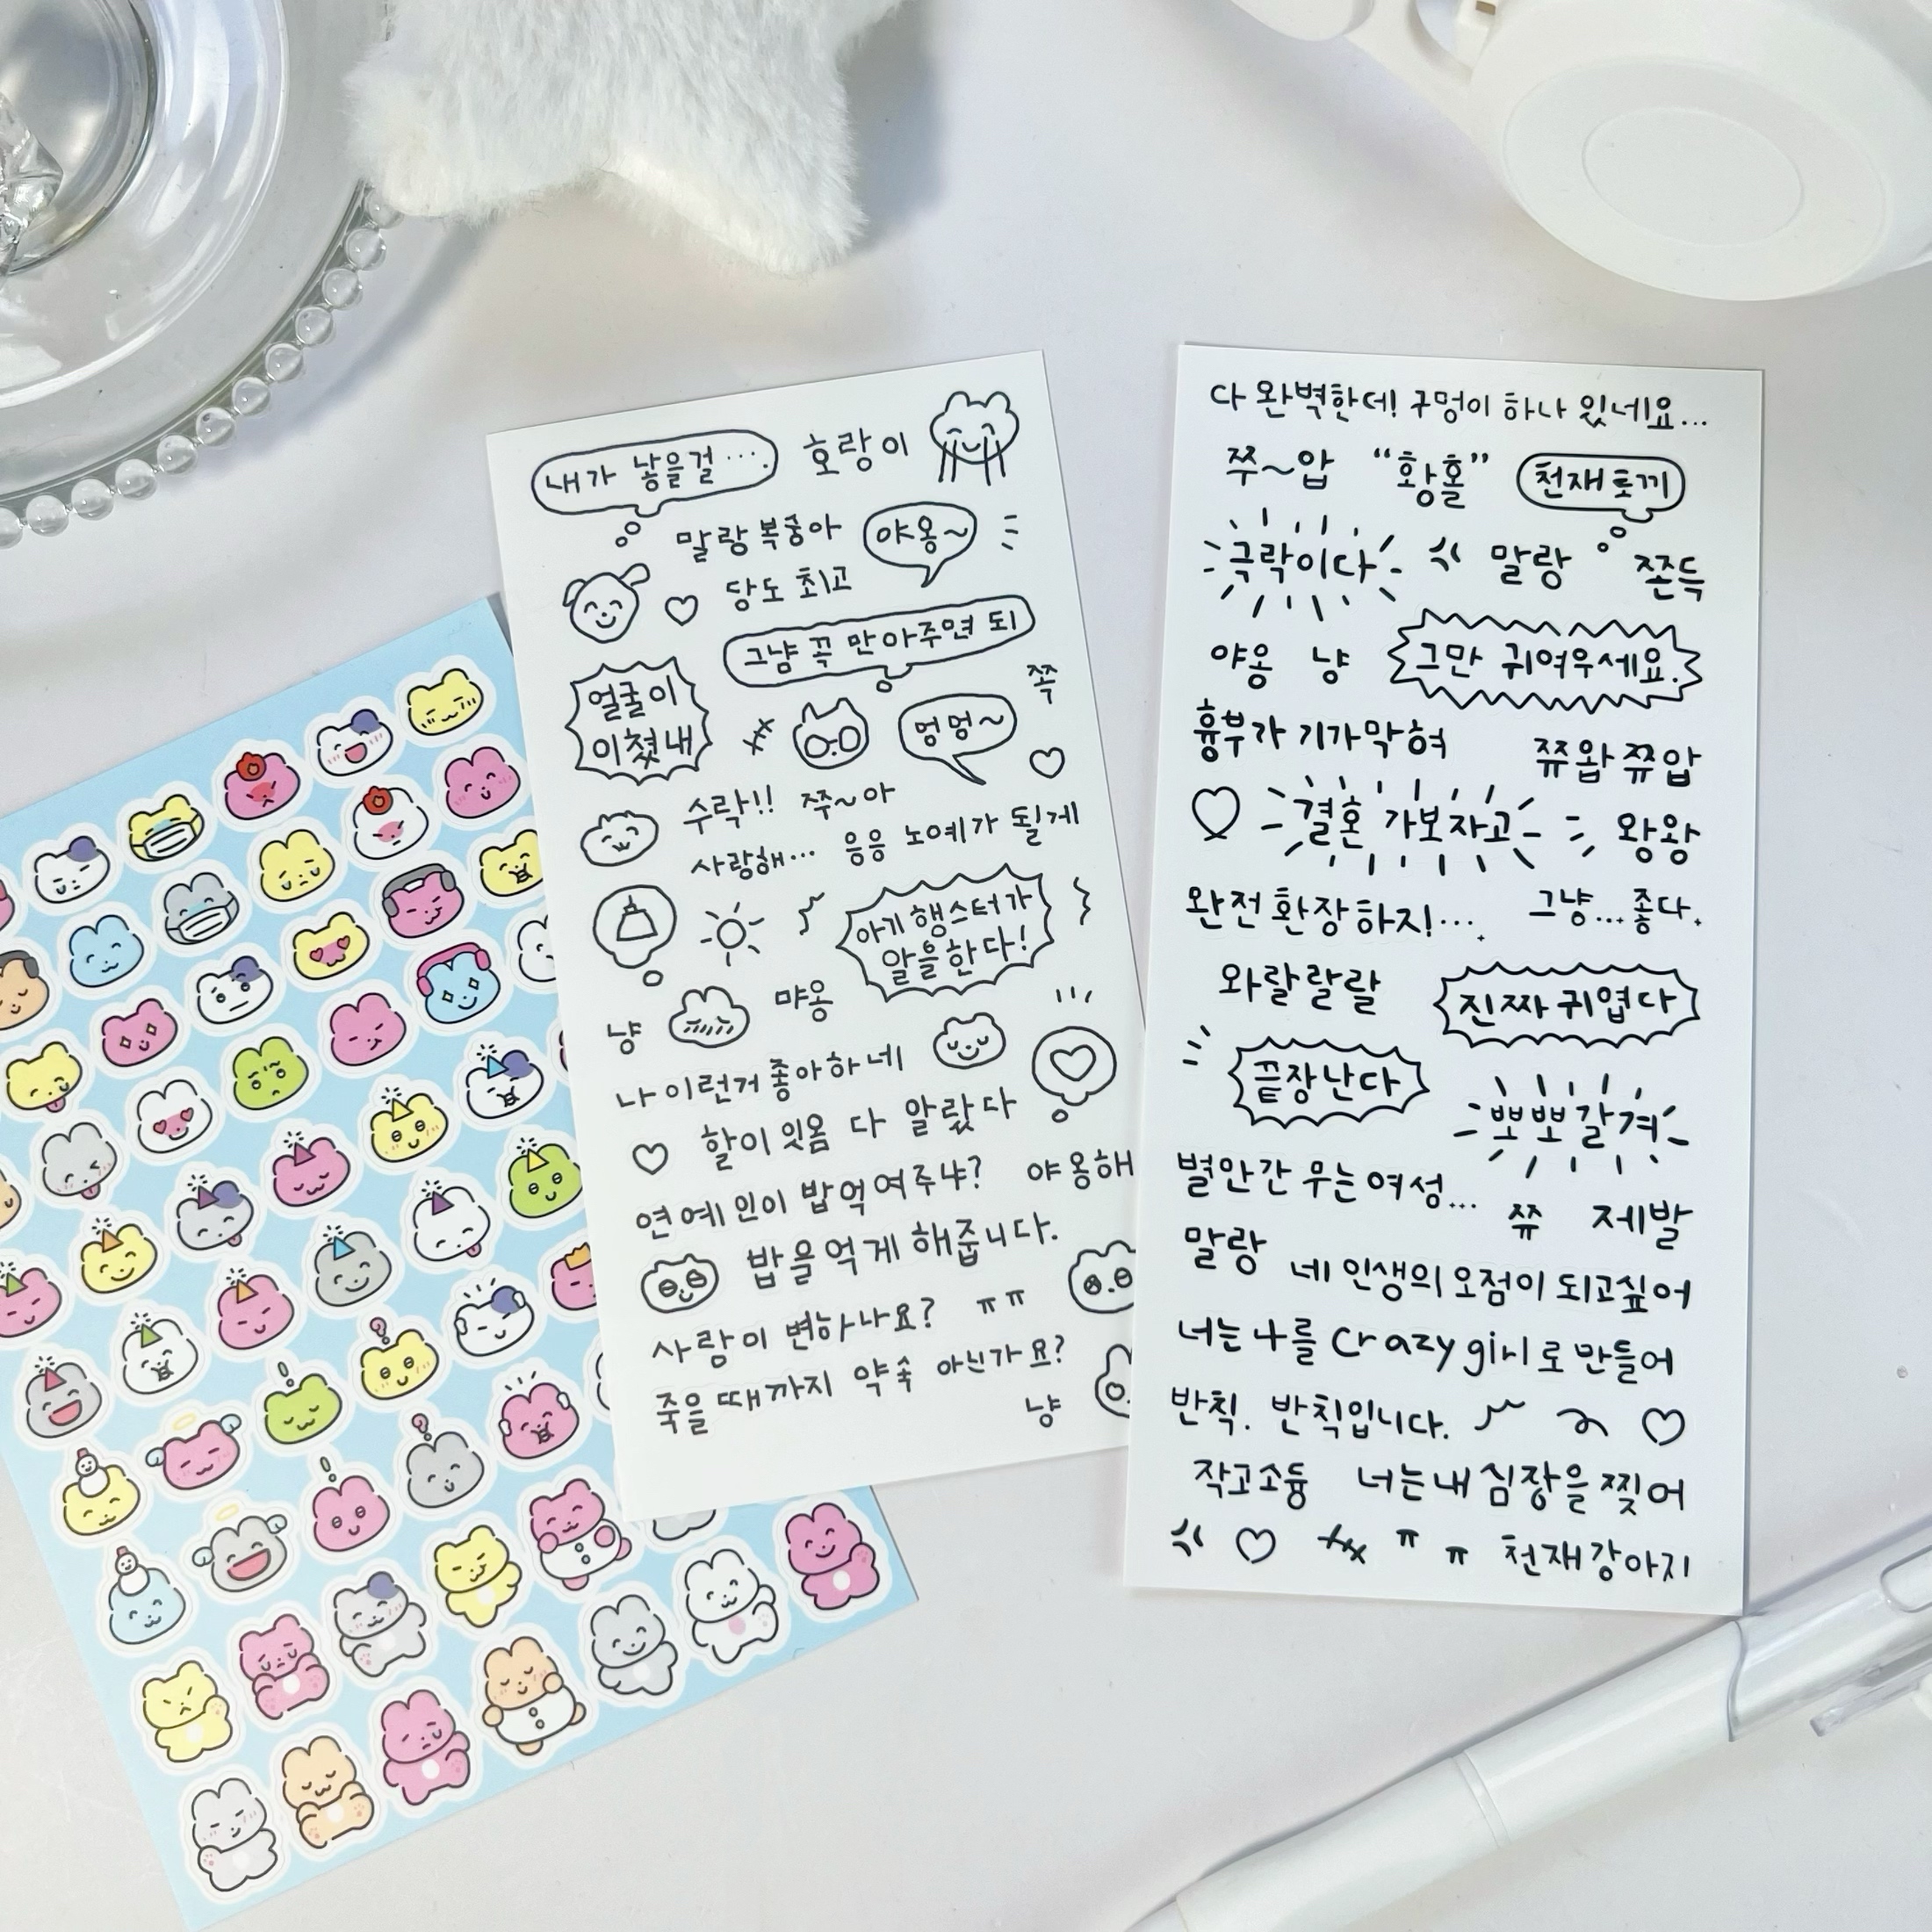 내가 낳을걸....
호랑이
말랑복숭아
야옹~
당도 최고
그냥 꼭 안아주면 되
얼굴이
이쳤내
쪽
멍멍~
수락!! 쭈~아
사랑해... 응응 노예가 될게
아기 햄스터가
알을한다!
냥
먀옹
나 이런거 좋아하네
할이잇옴 다 알랐다
연예인이 밥먹여주냐? 야옹해
밥을먹게 해줍니다.
사람이 변하나요? ㅠㅠ
죽을때까지 약속 아닌가요?
냥
다 완벽한데! 구멍이 하나 있네요...
쭈~압 “황홀” 천재토끼
극락이다 말랑 쫀득
야옹 냥 그만 귀여우세요.
흉부가 기가막혀
쮸왑쮸압
결혼 가보자고
왕왕
완전환장하지!...
그냥... 좋다.
와랄랄랄
진짜귀엽다
끝장난다
뽀뽀갈겨
벌안간 우는여성...
쮸 제발
말랑 네 인생의 오점이 되고싶어
너는 나를 crazy girl로 만들어
반칙. 반칙입니다.
작고소듕 너는 내 심장을 찢어
ㅠ ㅠ 천재강아지